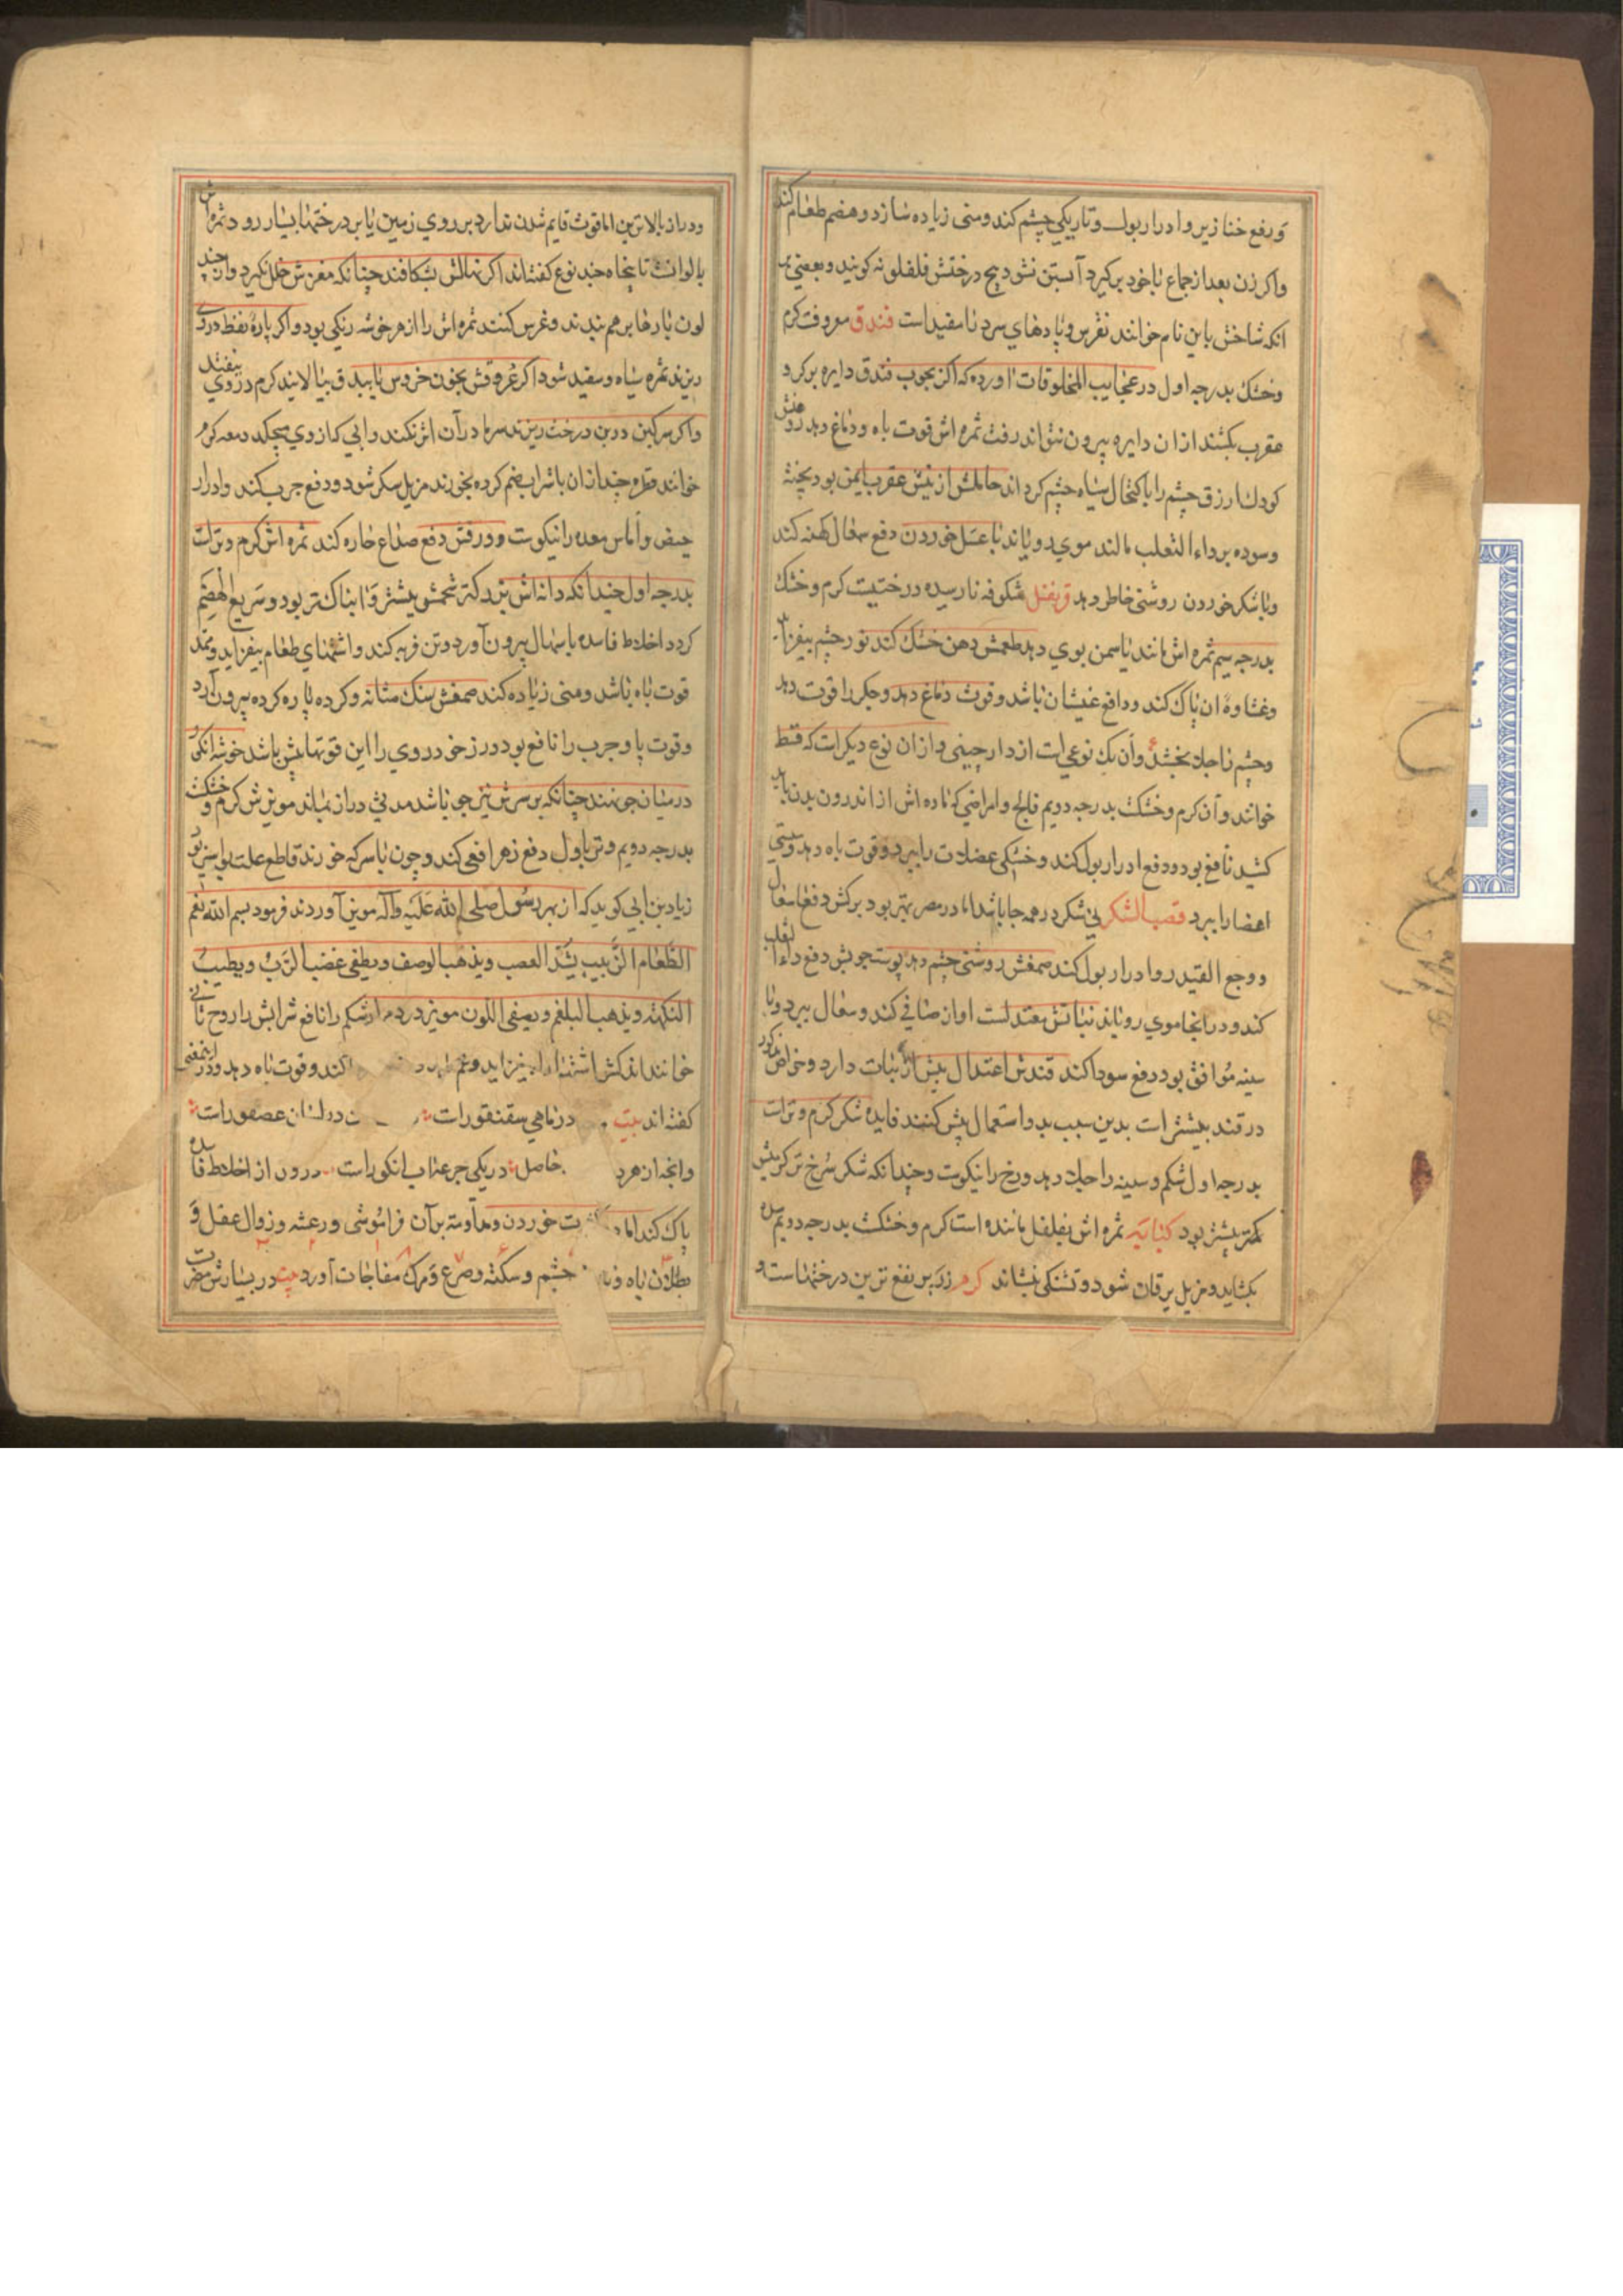 و رفع خنازیر و ادرار بول و تاریکی چشم کند و منی زیاده سازد و هضم طعام کند
و اکر زن بعد از جماع با خود برکیرد آبستن نشود بیخ درختش فلفلونه کویند و بعضی
انکه شاخش باین نام خوانند نقرس و بادهای سرد را مفید است فندق معروفت کرم
و خشک بدرجه اول در عجایب المخلوقات آورده که اکر بچوب فندق دایره بر کرد
عقرب بکشند از ان دایره بیرون نتواند رفت ثمره اش قوت باه و دماغ دهد روغنش
کودک ازرق چشم را باکتحال سیاه چشم کرداند حاملش از نیش عقرب ایمن بود پخته
و سوده بر داء الثعلب مالند موی رویاند با عسل خوردن دفع سعال کهنه کند
و با شکر خوردن روشنی خاطر دهد قرنفل شکوفه نارسیده درختیست کرم و خشک
بدرجه سیم ثمره اش مانند یاسمن بوی دهد طعمش دهن خشک کند نور چشم بیفزاید
و غشاوه آن پاک کند و دافع غشیان باشد و قوت دماغ دهد و جکر را قوت دهد
و چشم را جلا بخشد و آن یک نوعی است از دارچینی و از ان نوع دیکر است که قسط
خوانند و آن کرم و خشک بدرجه دویم فالج و امراضی که ماده اش از اندرون بدن باید
کشید نافع بود و دفع ادرار بول کند و خشکی عضلات را ببرد و قوت باه دهد و سستی
اعضا را ببرد قصب السکر نی شکر در همه جا باشد اما در مصر بهتر بود برکش دفع سعال
کند و در انجا موی رویاند نباتش معتدلست اواز صافی کند و سعال ببرد و با
سینه موافق بود دفع سودا کند قندش اعتدال بیش از نبات دارد و خواص مذکور
در قند بیشتر است بدین سبب بدو استعمال بیش کنند فایده شکر کرم و تر است
بدرجه اول شکم و سینه را جلا دهد و رخ را نیکوست و چندانکه شکر سرخ تر کرمیش
بیشتر بود کبابه ثمره اش بفلفل ماننده است کرم و خشک بدرجه دویم سده
بکشاید و مزیل یرقان شود و تشنکی بنشاند کرم رز پر نفع ترین درختهاست و
و دراز بالاترین اما قوت قایم شدن ندارد بر روی زمین یا بر درختها بسیار رود ثمره اش
بالوانست تا پنجاه چند نوع کفته اند اکر نهالش بشکافند چنانکه مغزش خلل نکیرد و از چند
لون بارها بر هم بندند و غرس کنند ثمره اش را از هر خوشه رنکی بود و اکر پاره نفط در وی
ریزند ثمره سیاه و سفید شود اکر عروقش بخون خروس یا بیدق بیالایند کرم در وی نیفتد
و اکر سرکین در بن درخت ریزند سرما در آن اثر نکند و آبی که از وی میچکد دمعه کرم
خوانند قطره چند از ان با شراب ضم کرده بخورند مزیل سکر شود و دفع جرب کند و ادرار
حیض و آماس معده را نیکوست و ورقش دفع صداع حاره کند ثمره اش کرم و تر است
بدرجه اول چندانکه دانه اش بزرکتر شحمش بیشتر و آبناک تر بود و سریع الهضم
کردد اخلاط فاسده باسهال بیرون آورد و تن فربه کند و اشتهای طعام بیفزاید و ممد
قوت باه باشد و منی زیاده کند صمغش سنک مثانه و کرده پاره کرده بیرون آرد
و قوت پا و جرب را نافع بود و رز خود روی را این قوتها بیش باشد خوشه انکور
در میان جو نهند چنانکه بر سرش نیز جو باشد مدتی دراز بماند مویزش کرم و خشکست
بدرجه دویم و تر باول دفع زهر افعی کند و چون با سرکه خورند قاطع علت بواسیر بود
زیاد بن ابی کوید که از بهر رسول صلی الله علیه و آله مویز آوردند فرمود بسم الله نعم
الطعام الزبیب یشد العصب و یذهب الوصف و یطفی غضب الرب و یطیب
النکهة و یذهب البلغم و یصفی اللون مویز درد شکم را نافع شرابش را روح ثانی
خوانند اندکش اشتها را بیفزاید و کند و قوت باه دهد و در این معنی
کفته اند بیت در ماهی سقنقور است در لسان عصفور است
وانچه از هر حاصل در یکی جرعه آب انکور است درون از اخلاط فاسده
پاک کند اما خوردن و مداومت بر آن فراموشی و رعشه و زوال عقل و
بطلان باه و چشم و سکته و صرع و مرک مفاجات آورد بیت در بسیارش مضرت